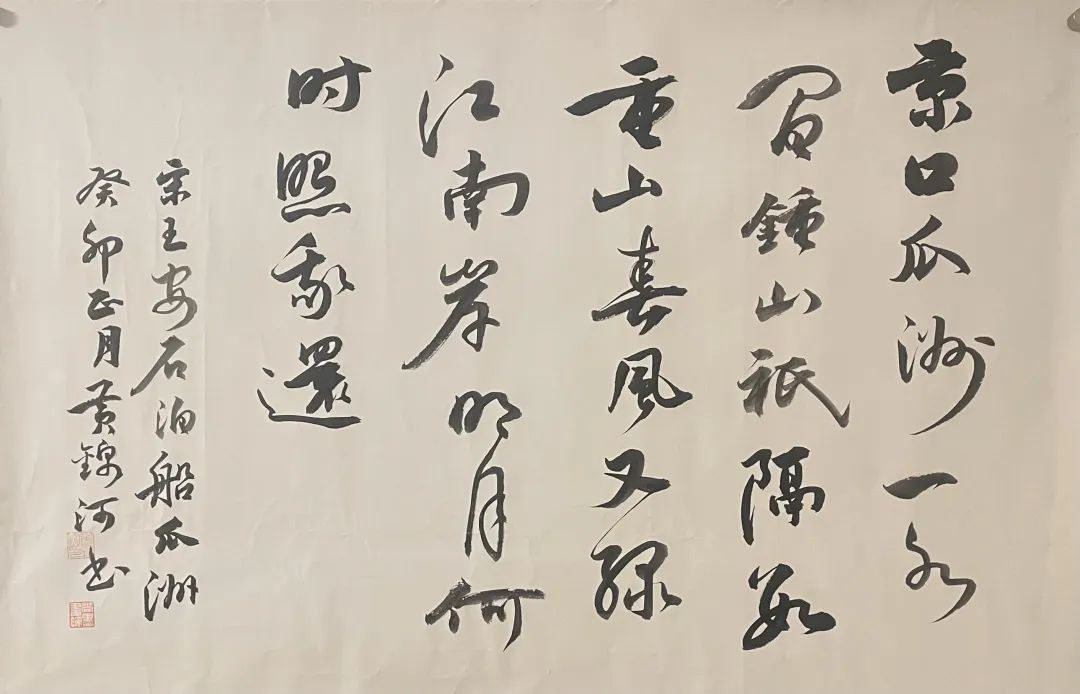 京口瓜洲一水
间鍾山祇隔數
重山春風又绿
江南岸明月何
时照我還
宋王安石泊船瓜洲
癸卯正月黄錦河书